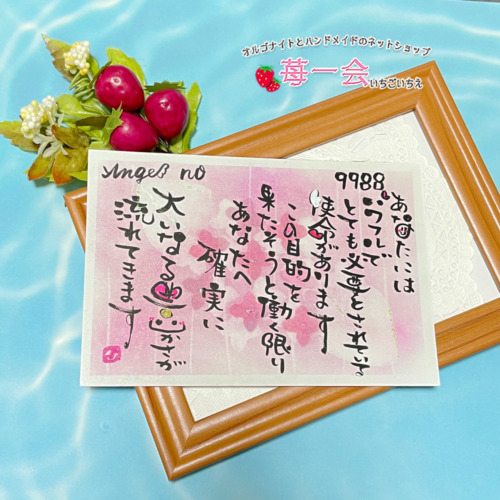 オルゴナイトとハンドメイドのネットショップ
苺一会
いちごいちえ
Angel no
9988
あなたには
パワフルで
とても必要とされている
使命があります
この目的を
果たそうと働く限り
あなたへ
確実に
大いなる豊かさが
流れてきます